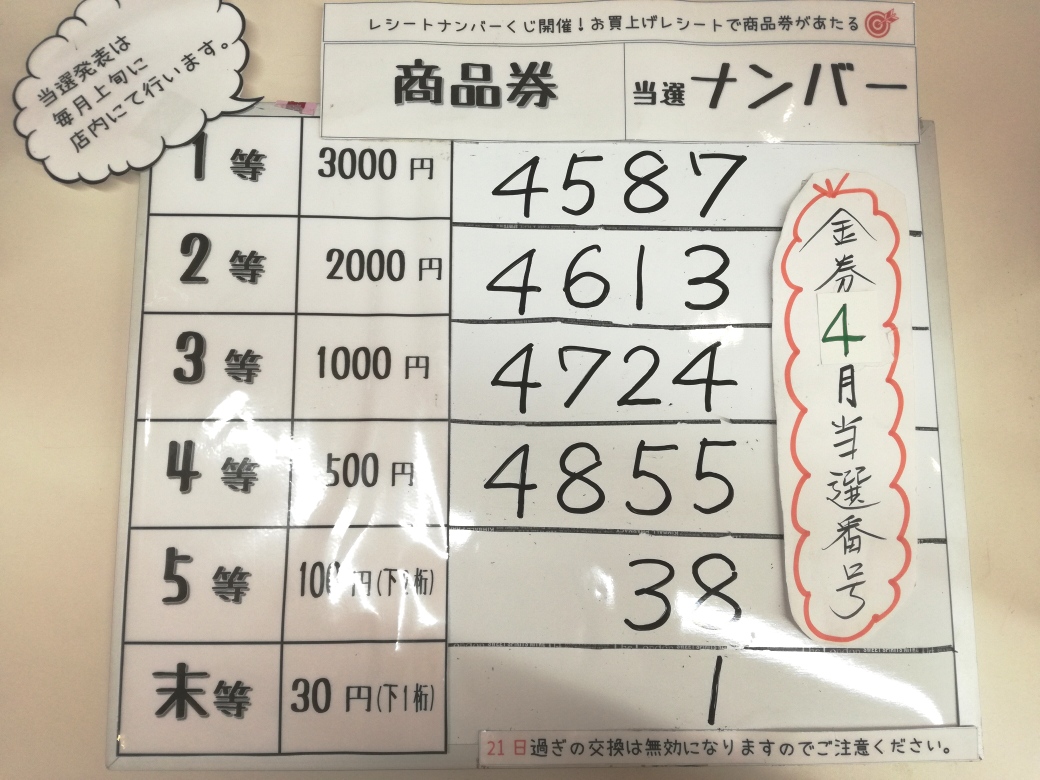 レシートナンバーくじ開催！お買上げレシートで商品券があたる
当選発表は
毎月上旬に
店内にて行います。
商品券 当選ナンバー
1等 3000円 4587
2等 2000円 4613
3等 1000円 4724
4等 500円 4855
5等 100円(下2桁) 38
末等 30円(下1桁) 1
金券4月当選番号
21日過ぎの交換は無効になりますのでご注意ください。